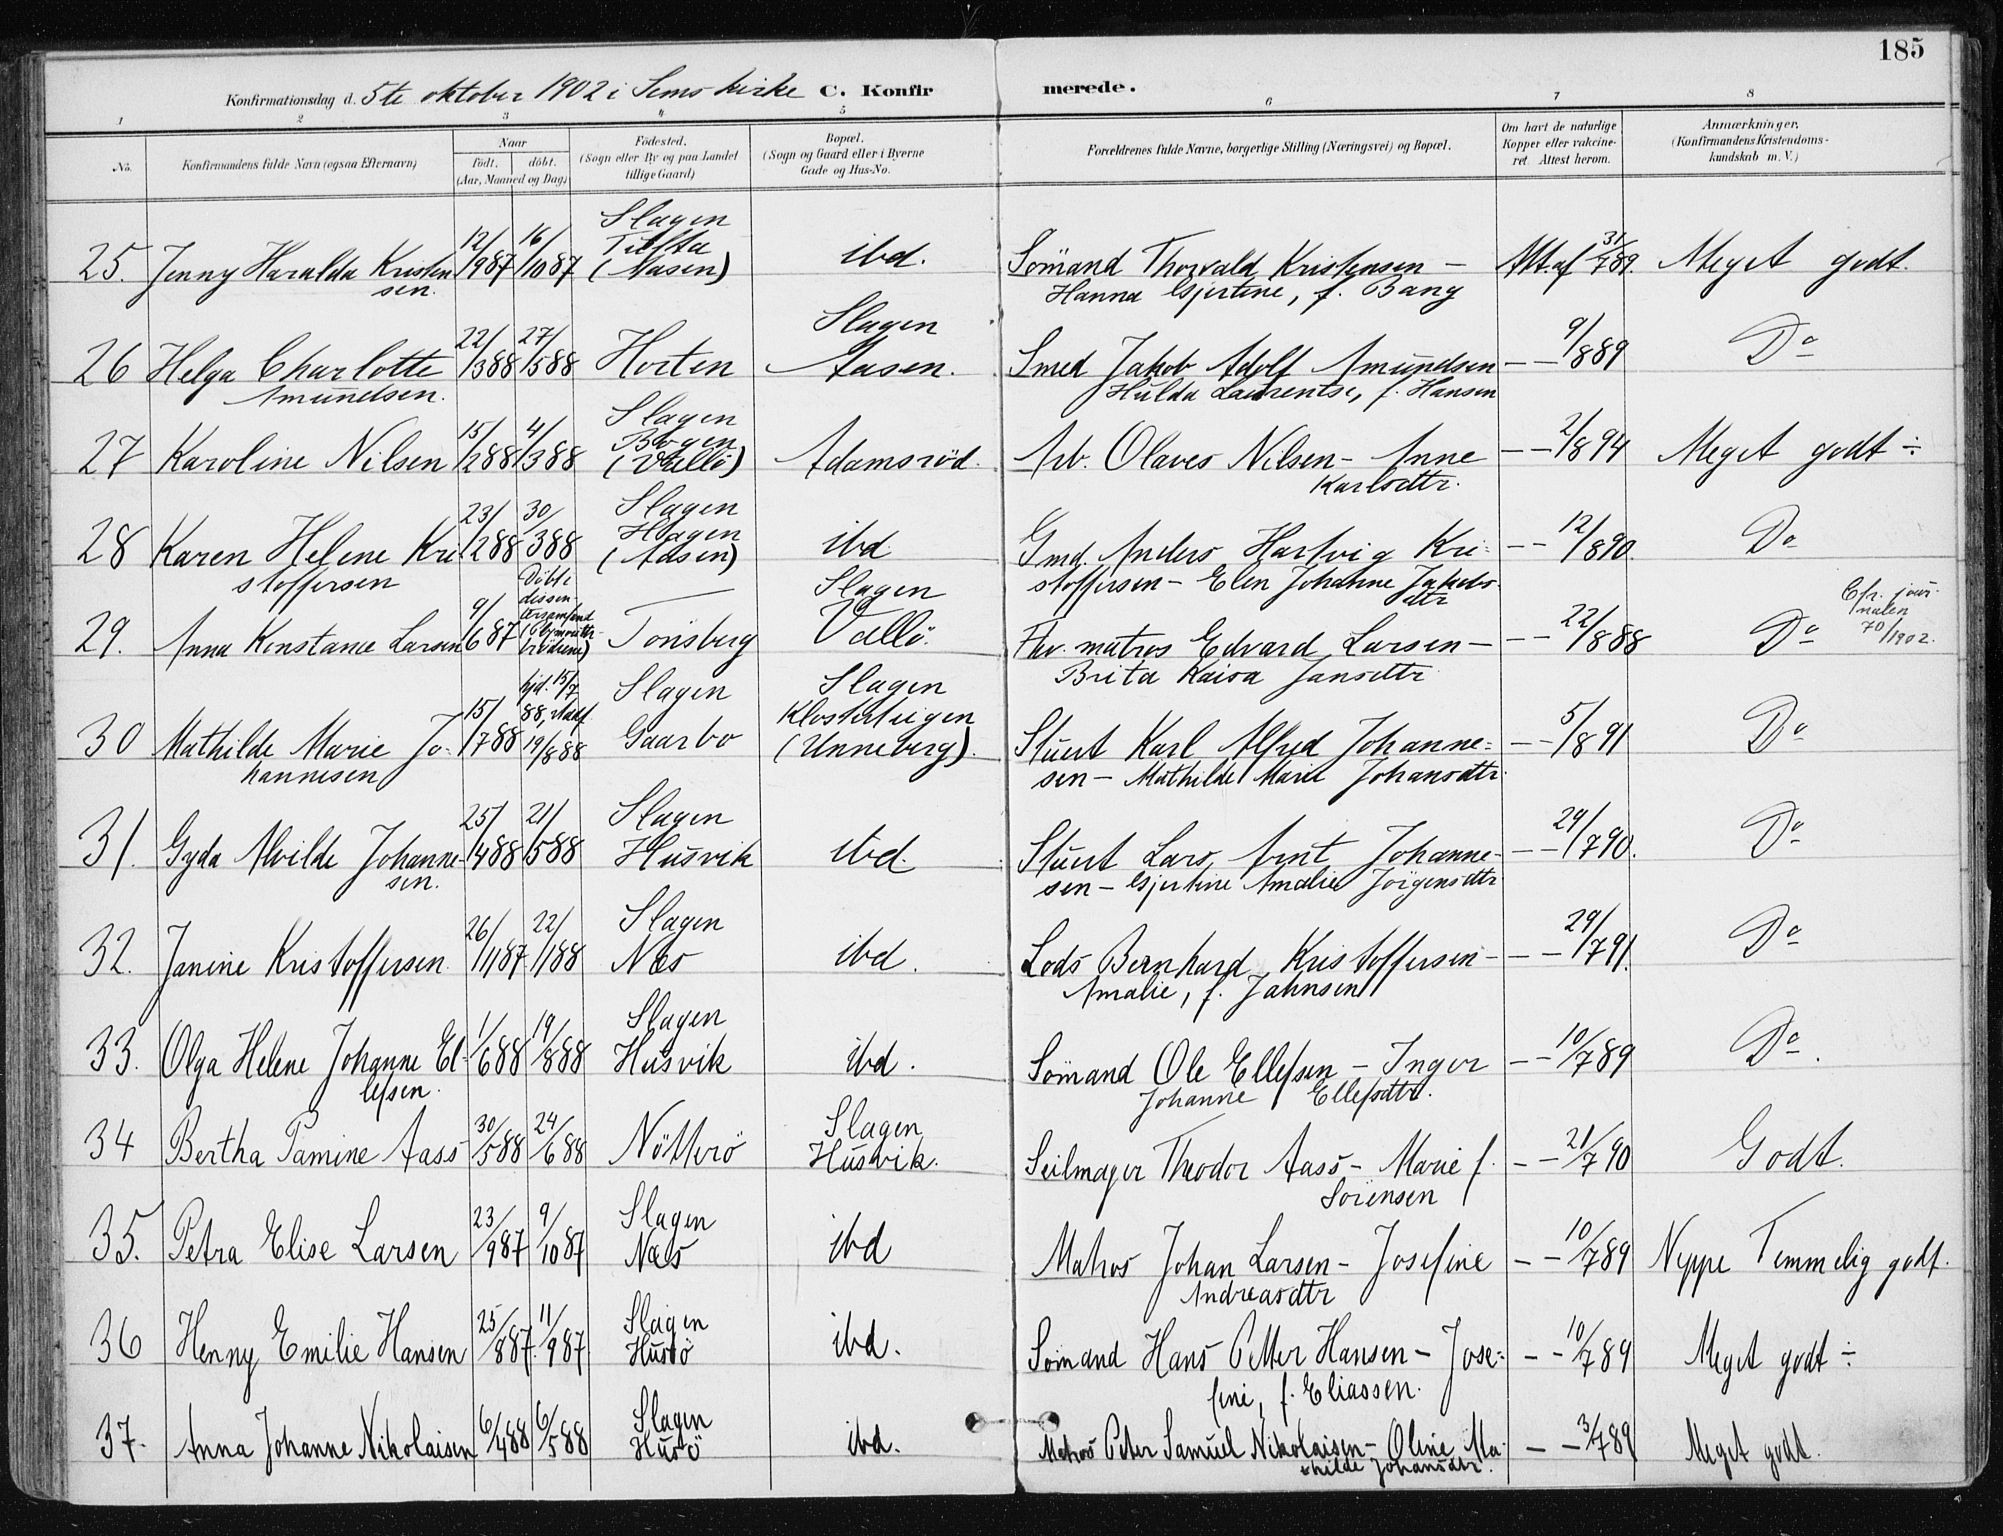 185
Konfirmationsdag d. 5te oktober 1902 i Sems kirke C. Konfirmerede.
1 2 3 4 5 6 7 8
No. Konfirmandens fulde Navn (ogsaa Efternavn) Naar født. døbt. (Aar, Maaned og Dag) Fødested. (Sogn eller By og paa Landet tillige Gaard) Bopæl. (Sogn og Gaard eller i Byerne Gade og Hus-No. Forældrenes fulde Navne, borgerlige Stilling (Næringsvei) og Bopæl. Om havt de naturlige Kopper eller vakcineret. Attest herom. Anmærkninger. (Konfirmandens Kristendomskundskab m. V.)
25. Jenny Haralda Kristensen 12/987 16/1087 Slagen (Aasen) ibd. Sömand Thorvald Kristensen — Hanna Gjertine, f. Bang Att. af 31/789. Meget godt.
26 Helga Charlotte Amundsen. 22/388 27/588 Horten Slagen Aasen. Smed Jakob Adolf Amundsen Hulda Laurentse, f. Hansen — — 9/889 Do
27 Karoline Nilsen 15/288 4/388 Slagen Bogen (Vallö) Adamsröd. Arb. Olaves Nilsen — Anne Karlsdtr. — — 2/894 Meget godt ÷
28 Karen Helene Kristoffersen 23/288 30/388 Slagen Hagen (Aasen) ibd Gmd. Anders Hartvig Kristoffersen — Elen Johanne Jakobsdtr — — 12/890 Do
29. Anna Konstance Larsen 9/687 Döbt i dissentersamfund (Plymouthbrödrene) Tönsberg Slagen Vallö. Fhv. matros Edvard Larsen — Brita Kaisa Jansdttr — — 22/888 Do Cfr. journalen 70/1902.
30 Mathilde Marie Johannesen 15/788 hjd. 15/7 88, stadf. 19/888 Slagen Gaarbo Slagen Klosterteigen (Unneberg). Stuert Karl Alfred Johannesen — Mathilde Marie Johansdtr. — — 5/891 Do
31. Gyda Alvilde Johannesen. 25/488 21/588 Slagen Husvik ibd. Stuert Lars Arnt Johannesen — Gjertine Amalie Jörgensdtr — — 29/790. Do
32. Janine Kristoffersen. 26/1187 22/188 Slagen Næs ibd. Lods Bernhard Kristoffersen — Amalie, f. Jahnsen — — 29/791. Do
33. Olga Helene Johanne Ellefsen. 1/688 19/888 Slagen Husvik ibd. Sömand Ole Ellefsen — Inger Johanne Ellefsdtr. — — 10/789 Do.
34 Bertha Pamine Aass 30/588 24/688 Nötterö Slagen Husvik. Seilmager Theodor Aass — Marie f. Sörensen — — 21/790 Godt.
35. Petra Elise Larsen 23/987 9/1087 Slagen Næs ibd Matros Johan Larsen — Josefine Andreasdtr — — 10/789 Neppe Temmelig godt.
36 Henny Emilie Hansen 25/887. 11/987. Slagen Husö ibd. Sömand Hans Petter Hansen — Josefine, f. Eliassen. — — 10/789 Meget godt ÷
37. Anna Johanne Nikolaisen 6/488 6/588 Slagen Husö ibd. Matros Peter Samuel Nikolaisen — Oline Mathilde Johansdtr. — — 3/789 Meget godt.